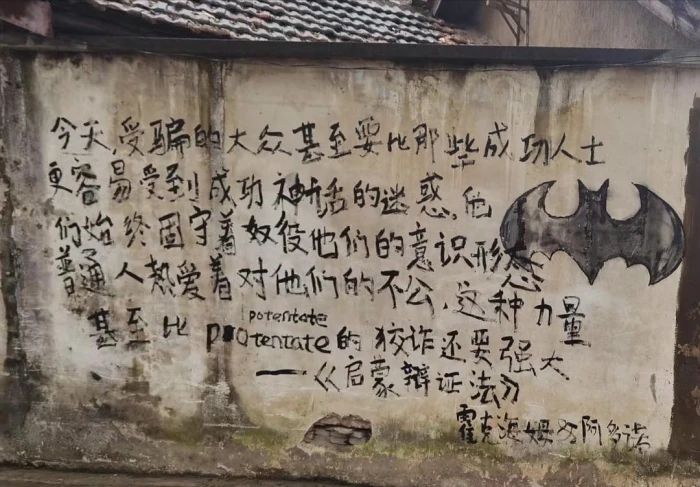 今天,受骗的大众甚至要比那些成功人士
更容易受到成功神话的迷惑,他
们始终固守着奴役他们的意识形态
普通人热爱着对他们的不公,这种力量
甚至比 protentate 的狡诈还要强大
potentate
——《启蒙辩证法》
霍克海姆&阿多诺